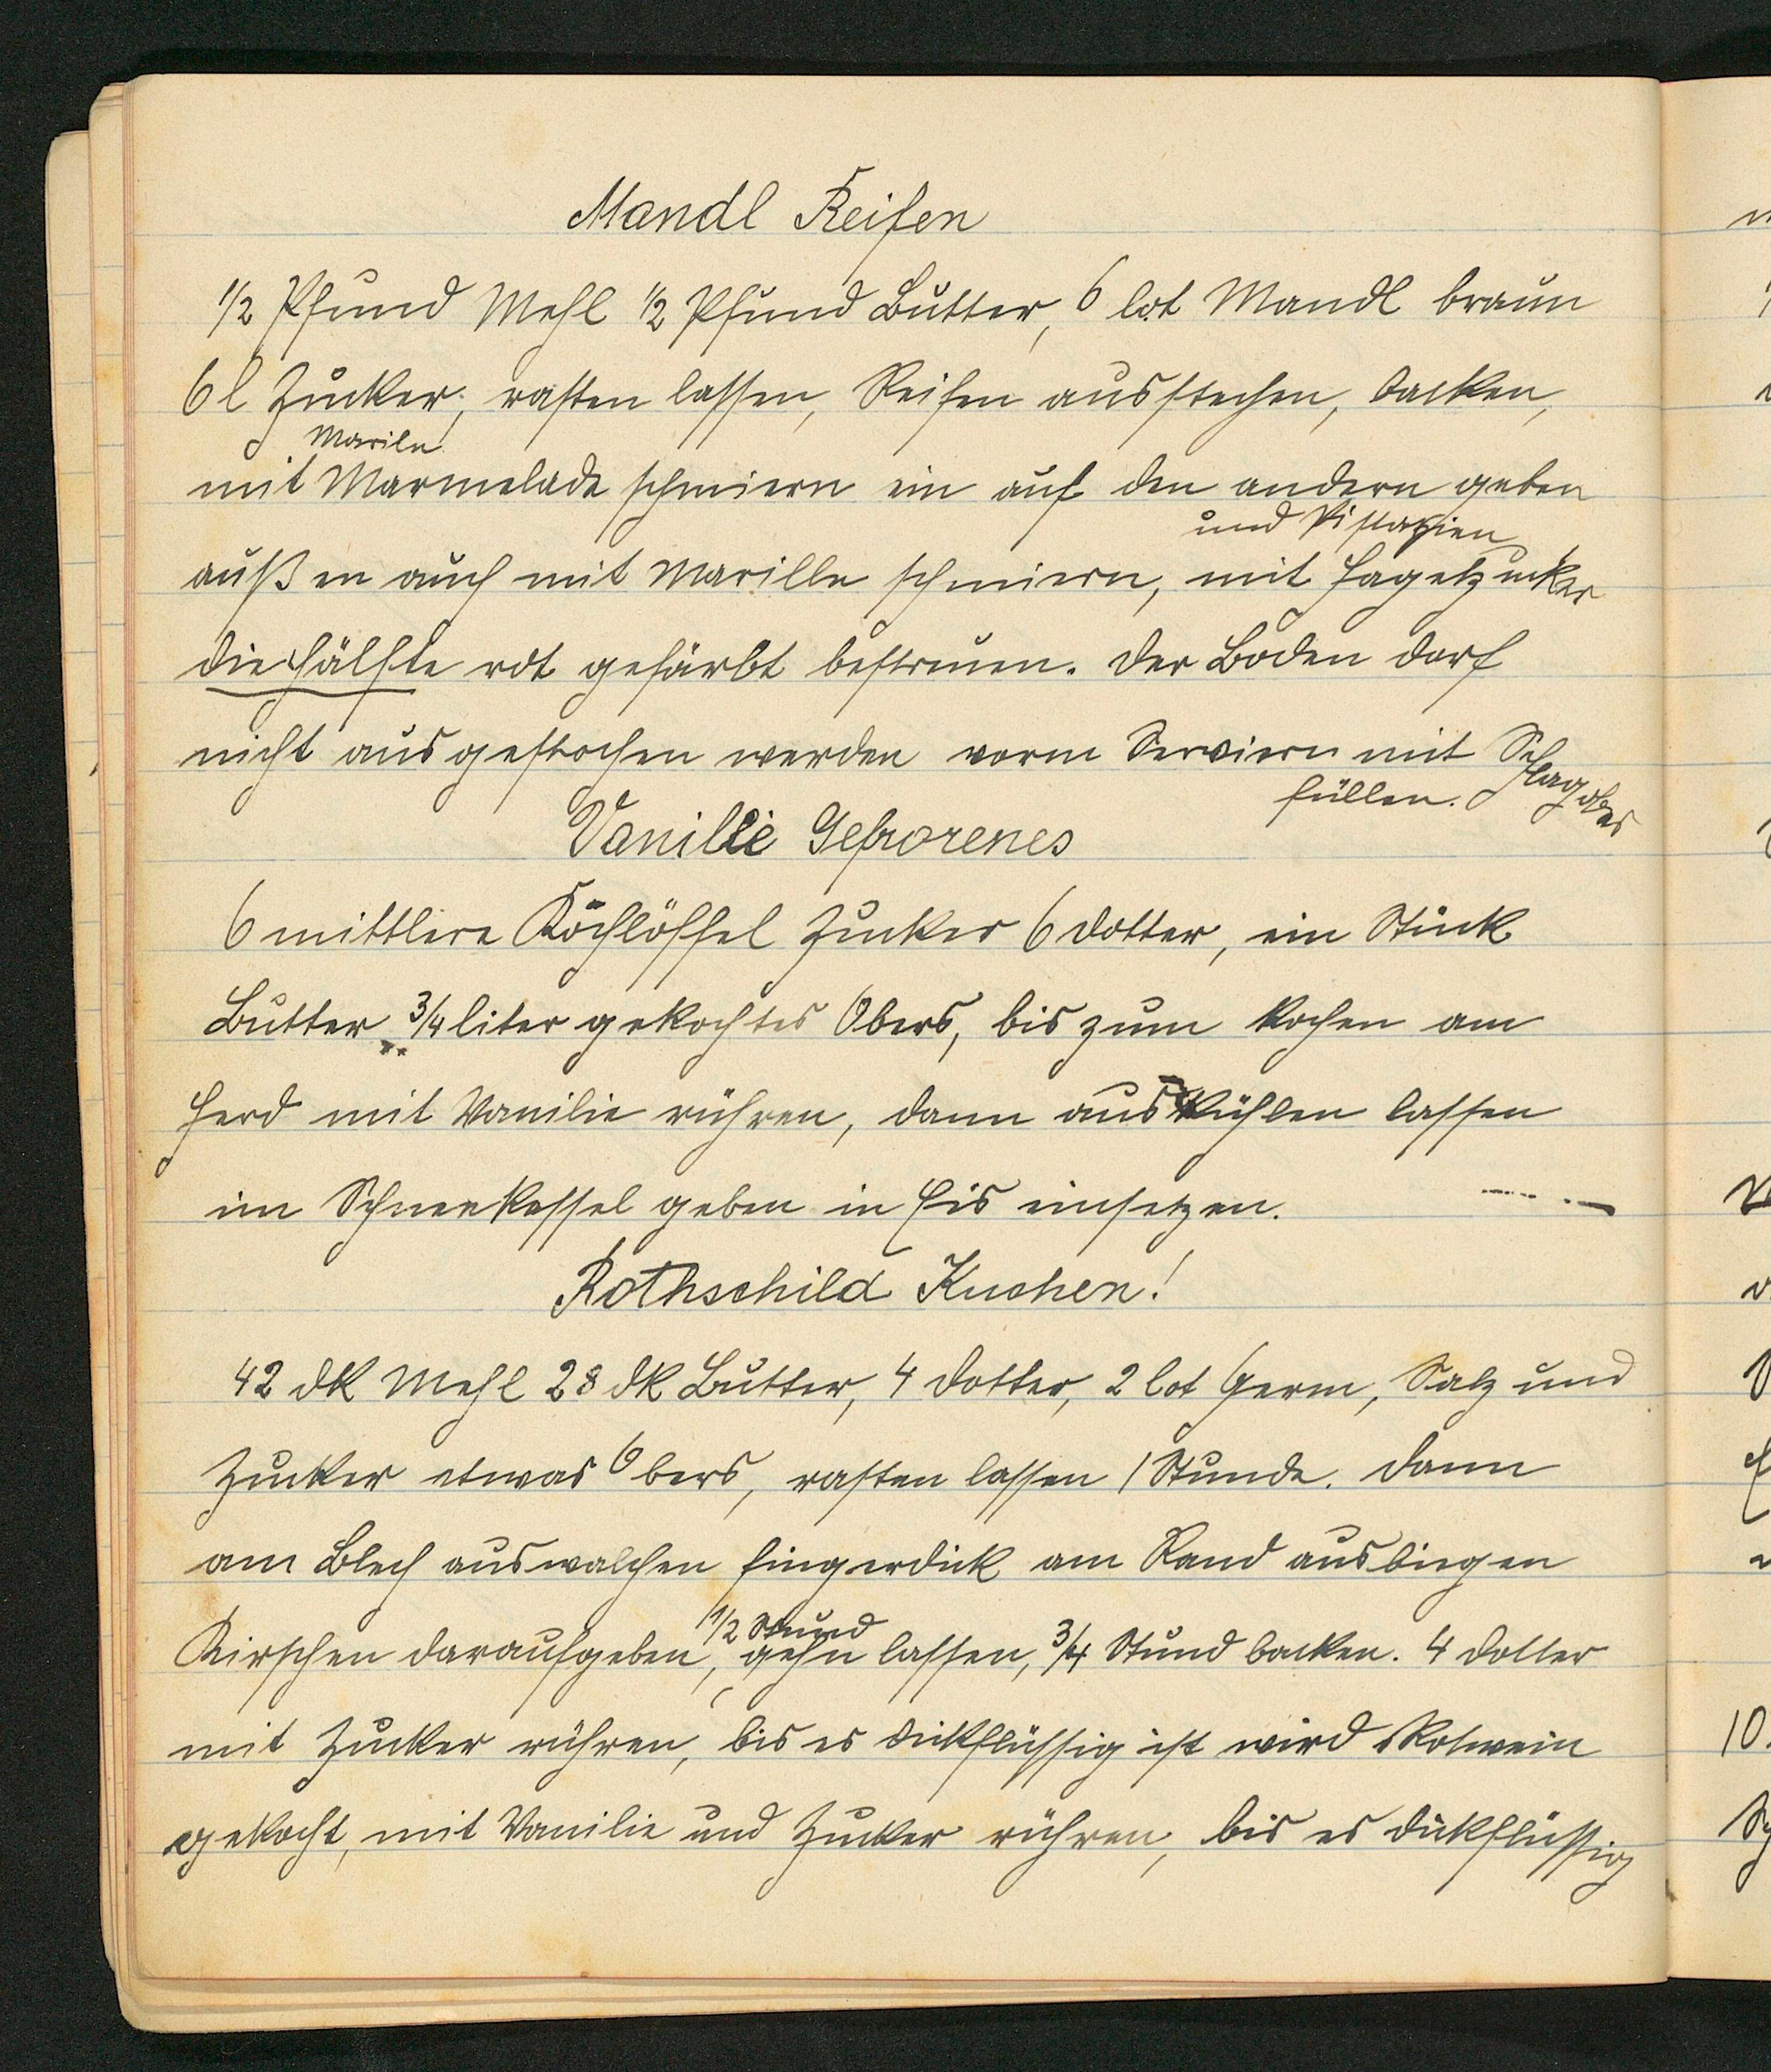 Mandl Reifen
1/2 Pfund Mehl 1/2 Pfund Butter, 6 lot Mandl braun
6 l Zucker, rasten lassen, Reifen ausstechen, backen,
Mariln
mit Marmelade schmiern ein auf den andern geben
und Pistazien
außen auch mit Marille schmiern, mit Hagelzucker
die Hälfte rot gefärbt bestreuen. Der Boden darf
nicht ausgestochen werden vorm Serviern mit Schlagobers
füllen.
Vanille Gefrorenes
6 mittlere Kochlöffel Zucker 6 Dotter, ein Stück
Butter 3/4 liter gekochtes Obers, bis zum kochen am
Herd mit Vanilie rühren, dann auskühlen lassen
im Schneekessel geben in Eis einsetzen.
Rothschild Kuchen!
42 dk Mehl 28 dk Butter, 4 Dotter, 2 lot Germ, Salz und
Zucker etwas Obers, rasten lassen 1 Stunde. Dann
am Blech auswalchen fingerdick am Rand ausbiegen
1/2 Stund
Kirschen daraufgeben, gehn lassen, 3/4 Stund backen. 4 Dotter
mit Zucker rühren, bis es dickflüssig ist wird Rotwein
gekocht, mit Vanilie und Zucker rühren, bis es dickflüssig
10.